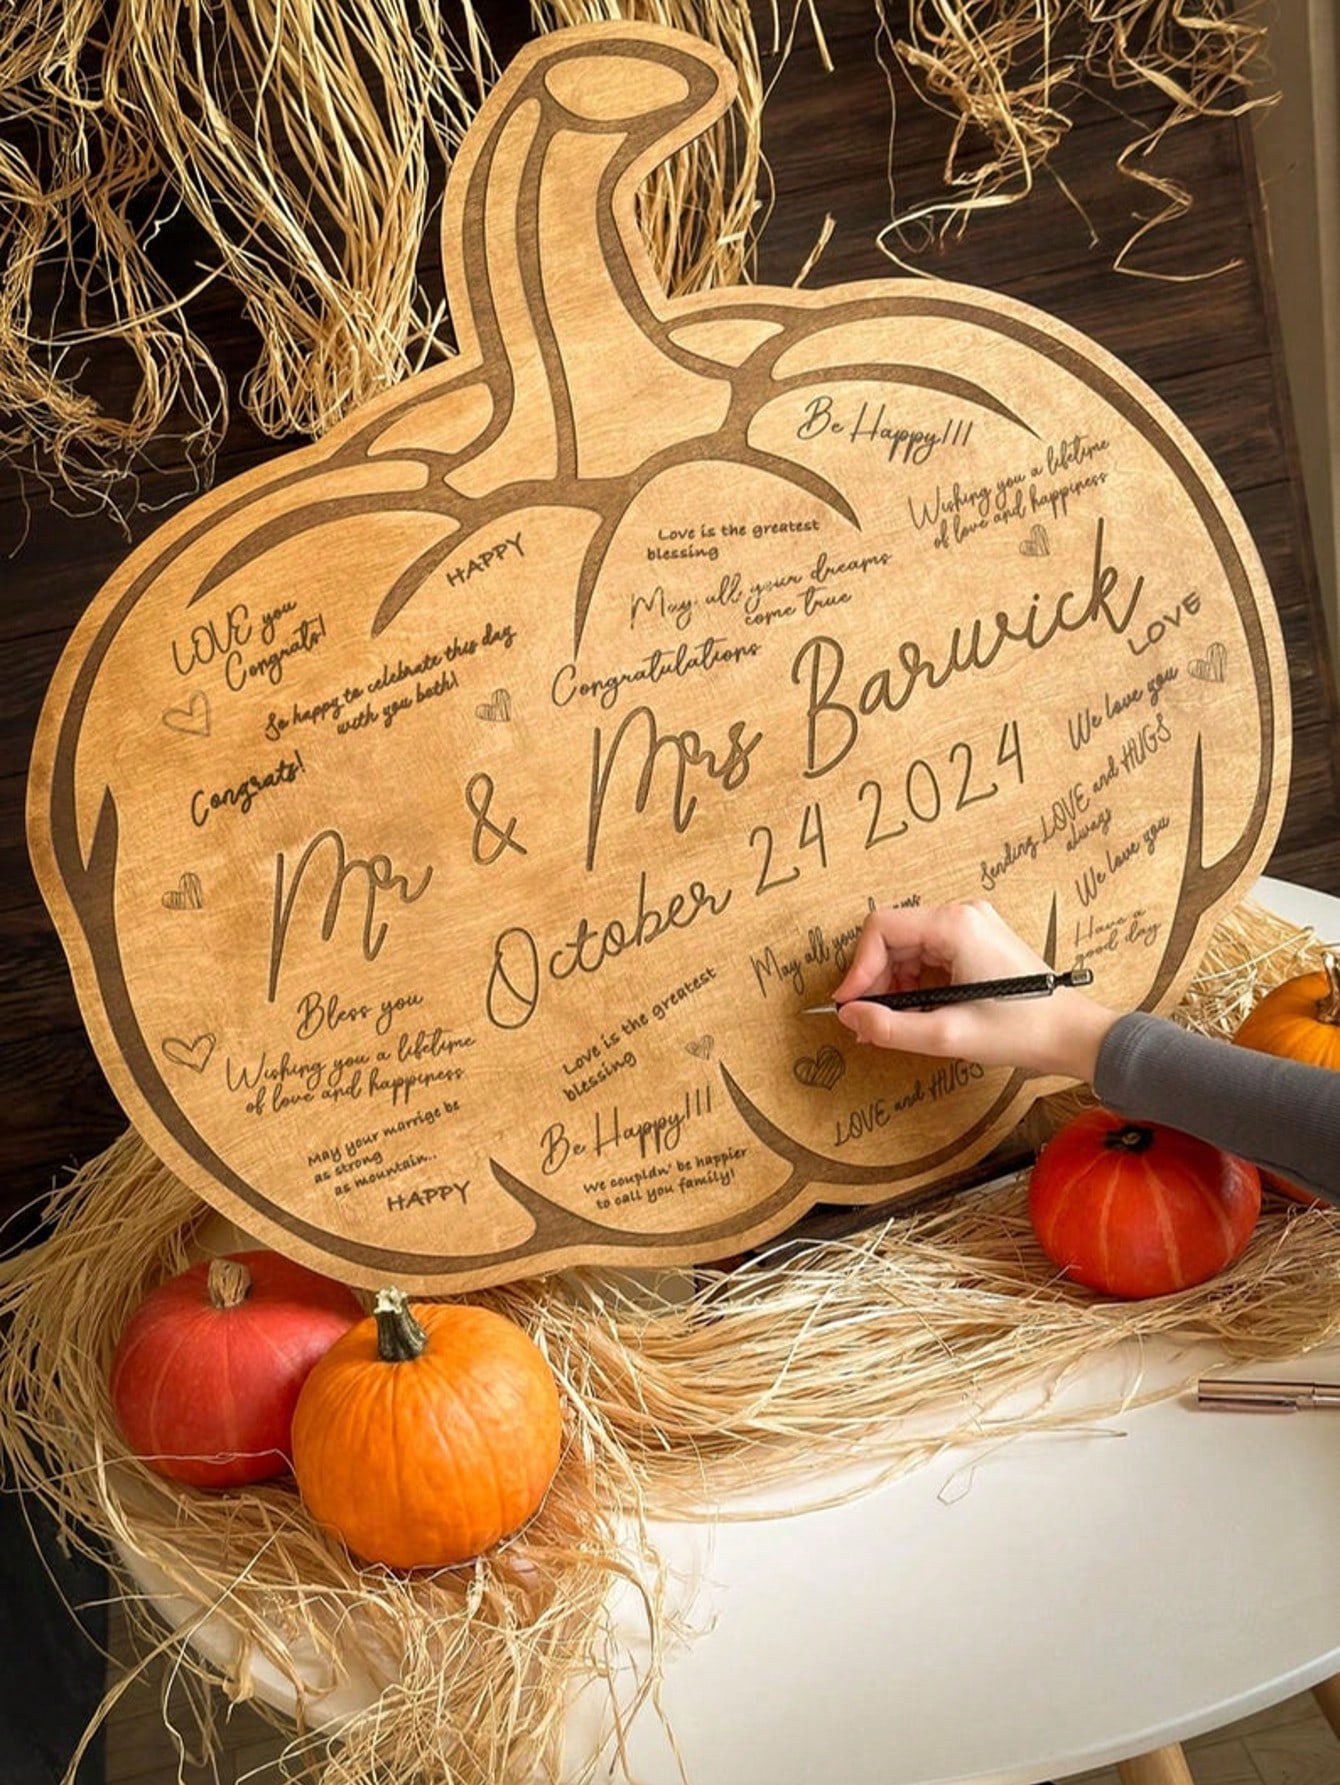 Be Happy!!!
Wishing you a lifetime
of love and happiness
Love is the greatest
blessing
HAPPY
May all your dreams
come true
LOVE you
Congrats!
So happy to celebrate this day
with you both!
Congratulations
LOVE
Congrats!
We love you
Mr & Mrs Barwick
October 24 2024
Sending LOVE and HUGS
always
We love you
Have a
good day
May all your
Bless you
Wishing you a lifetime
of love and happiness
Love is the greatest
blessing
May your marrige be
as strong
as mountain...
HAPPY
Be Happy!!!
We coupldn' be happier
to call you family!
LOVE and HUGS